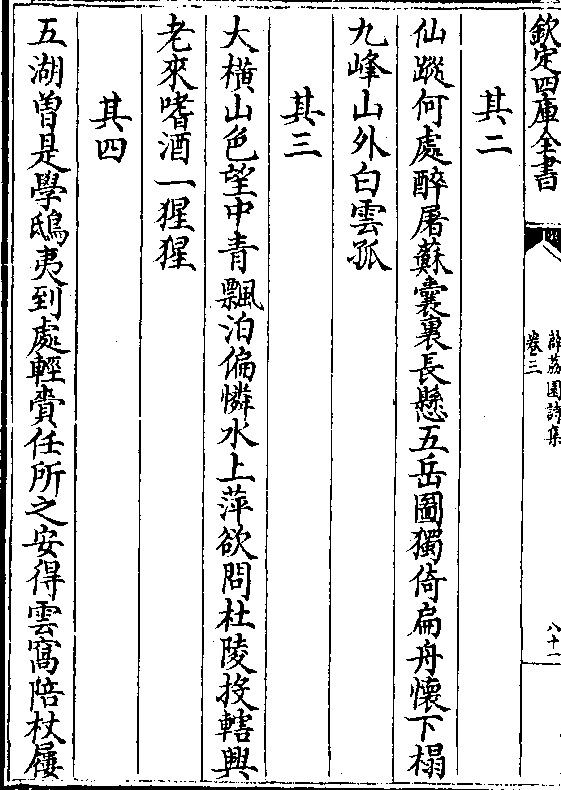 欽定四庫全書
薜荔園詩集
卷三
八十一
其二
仙蹤何處醉屠蘇囊裏長懸五岳圖獨倚扁舟懷下榻
九峰山外白雲孤
其三
大橫山色望中青飄泊偏憐水上萍欲問杜陵投轄興
老來嗜酒一猩猩
其四
五湖曽是學鴟夷到處輕賷任所之安得雲窩陪杖屨